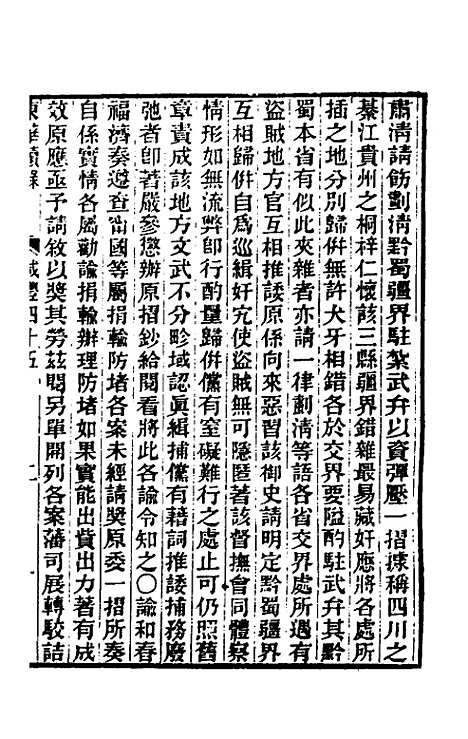 肅清請飭劃清黔蜀疆界駐紮武弁以資彈壓一摺據稱四川之
綦江貴州之桐梓仁懷該三縣疆界錯雜最易藏奸應將各處所
插之地分別歸倂無許犬牙相錯各於交界要隘酌駐武弁其黔
蜀本省有似此夾雜者亦請一律劃清等語各省交界處所遇有
盜賊地方官互相推諉原係向來惡習該御史請明定黔蜀疆界
互相歸倂自爲巡緝奸宄使盜賊無可隱匿著該督撫會同體察
情形如無流弊卽行酌量歸倂儻有窒礙難行之處止可仍照舊
章責成該地方文武不分畛域認眞緝捕儻有藉詞推諉捕務廢
弛者卽著嚴參懲辦原摺鈔給閱看將此各諭令知之○諭和春
福濟奏遵查富國等屬捐輸防堵各案未經請獎原委一摺所奏
自係實情各屬勸諭捐輸辦理防堵如果實能出貲出力著有成
效原應亟予請敘以獎其勞茲閱另單開列各案藩司展轉駁詰
東華續錄 咸豐四十五 二